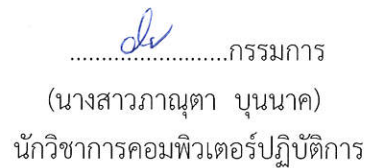 .........................กรรมการ
(นางสาวภาณุตา บุนนาค)
นักวิชาการคอมพิวเตอร์ปฏิบัติการ